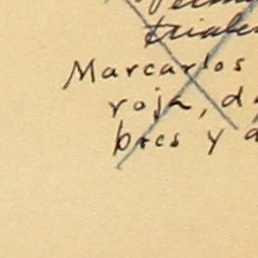 triales
Marcarlos
roja, d
bres y d